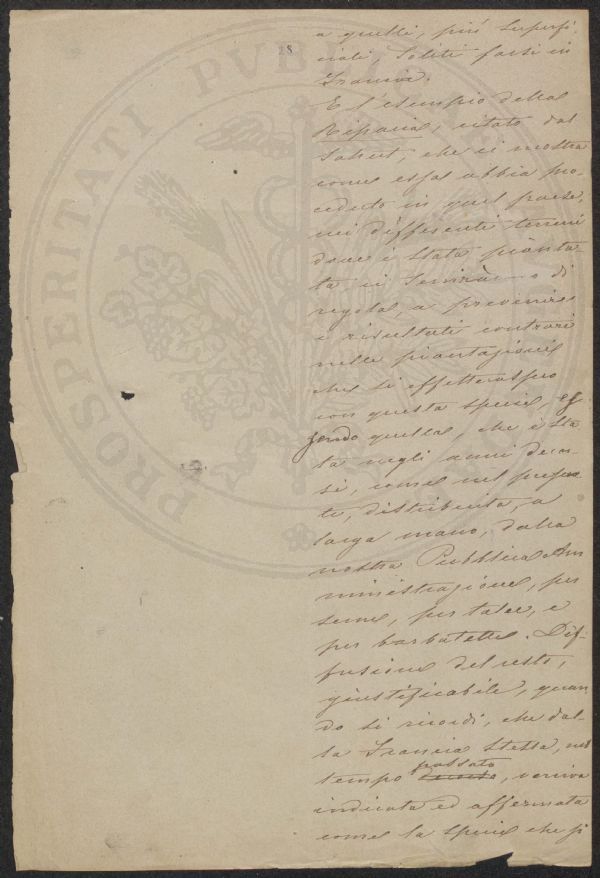 28
a quelli, più superfi-
ciali, soliti farsi in
Francia.
È l'esempio della
Riparia, citato dal
Sahut, che ci mostra
come essa abbia pro-
ceduto in quel paese,
nei differenti terreni
dove è stata pianta-
ta, ci di
regola, a prevenire
i risultati contrari
nelle piantagioni
che si effettueranno
con questa specie, es-
sendo quella, che è sta-
ta negli anni decor-
si, come nel presen-
te, distribuita, a
larga mano, dalla
nostra Pubblica Am-
ministrazione, per
seme, per talee, e
per barbatelle. Dif-
fusione del resto,
giustificabile, quan-
do si ricordi, che dal-
la Francia stessa, nel
passato
tempo, veniva
indicata ed affermata
come la specie che si
PROSPERITATI PVBLICAE